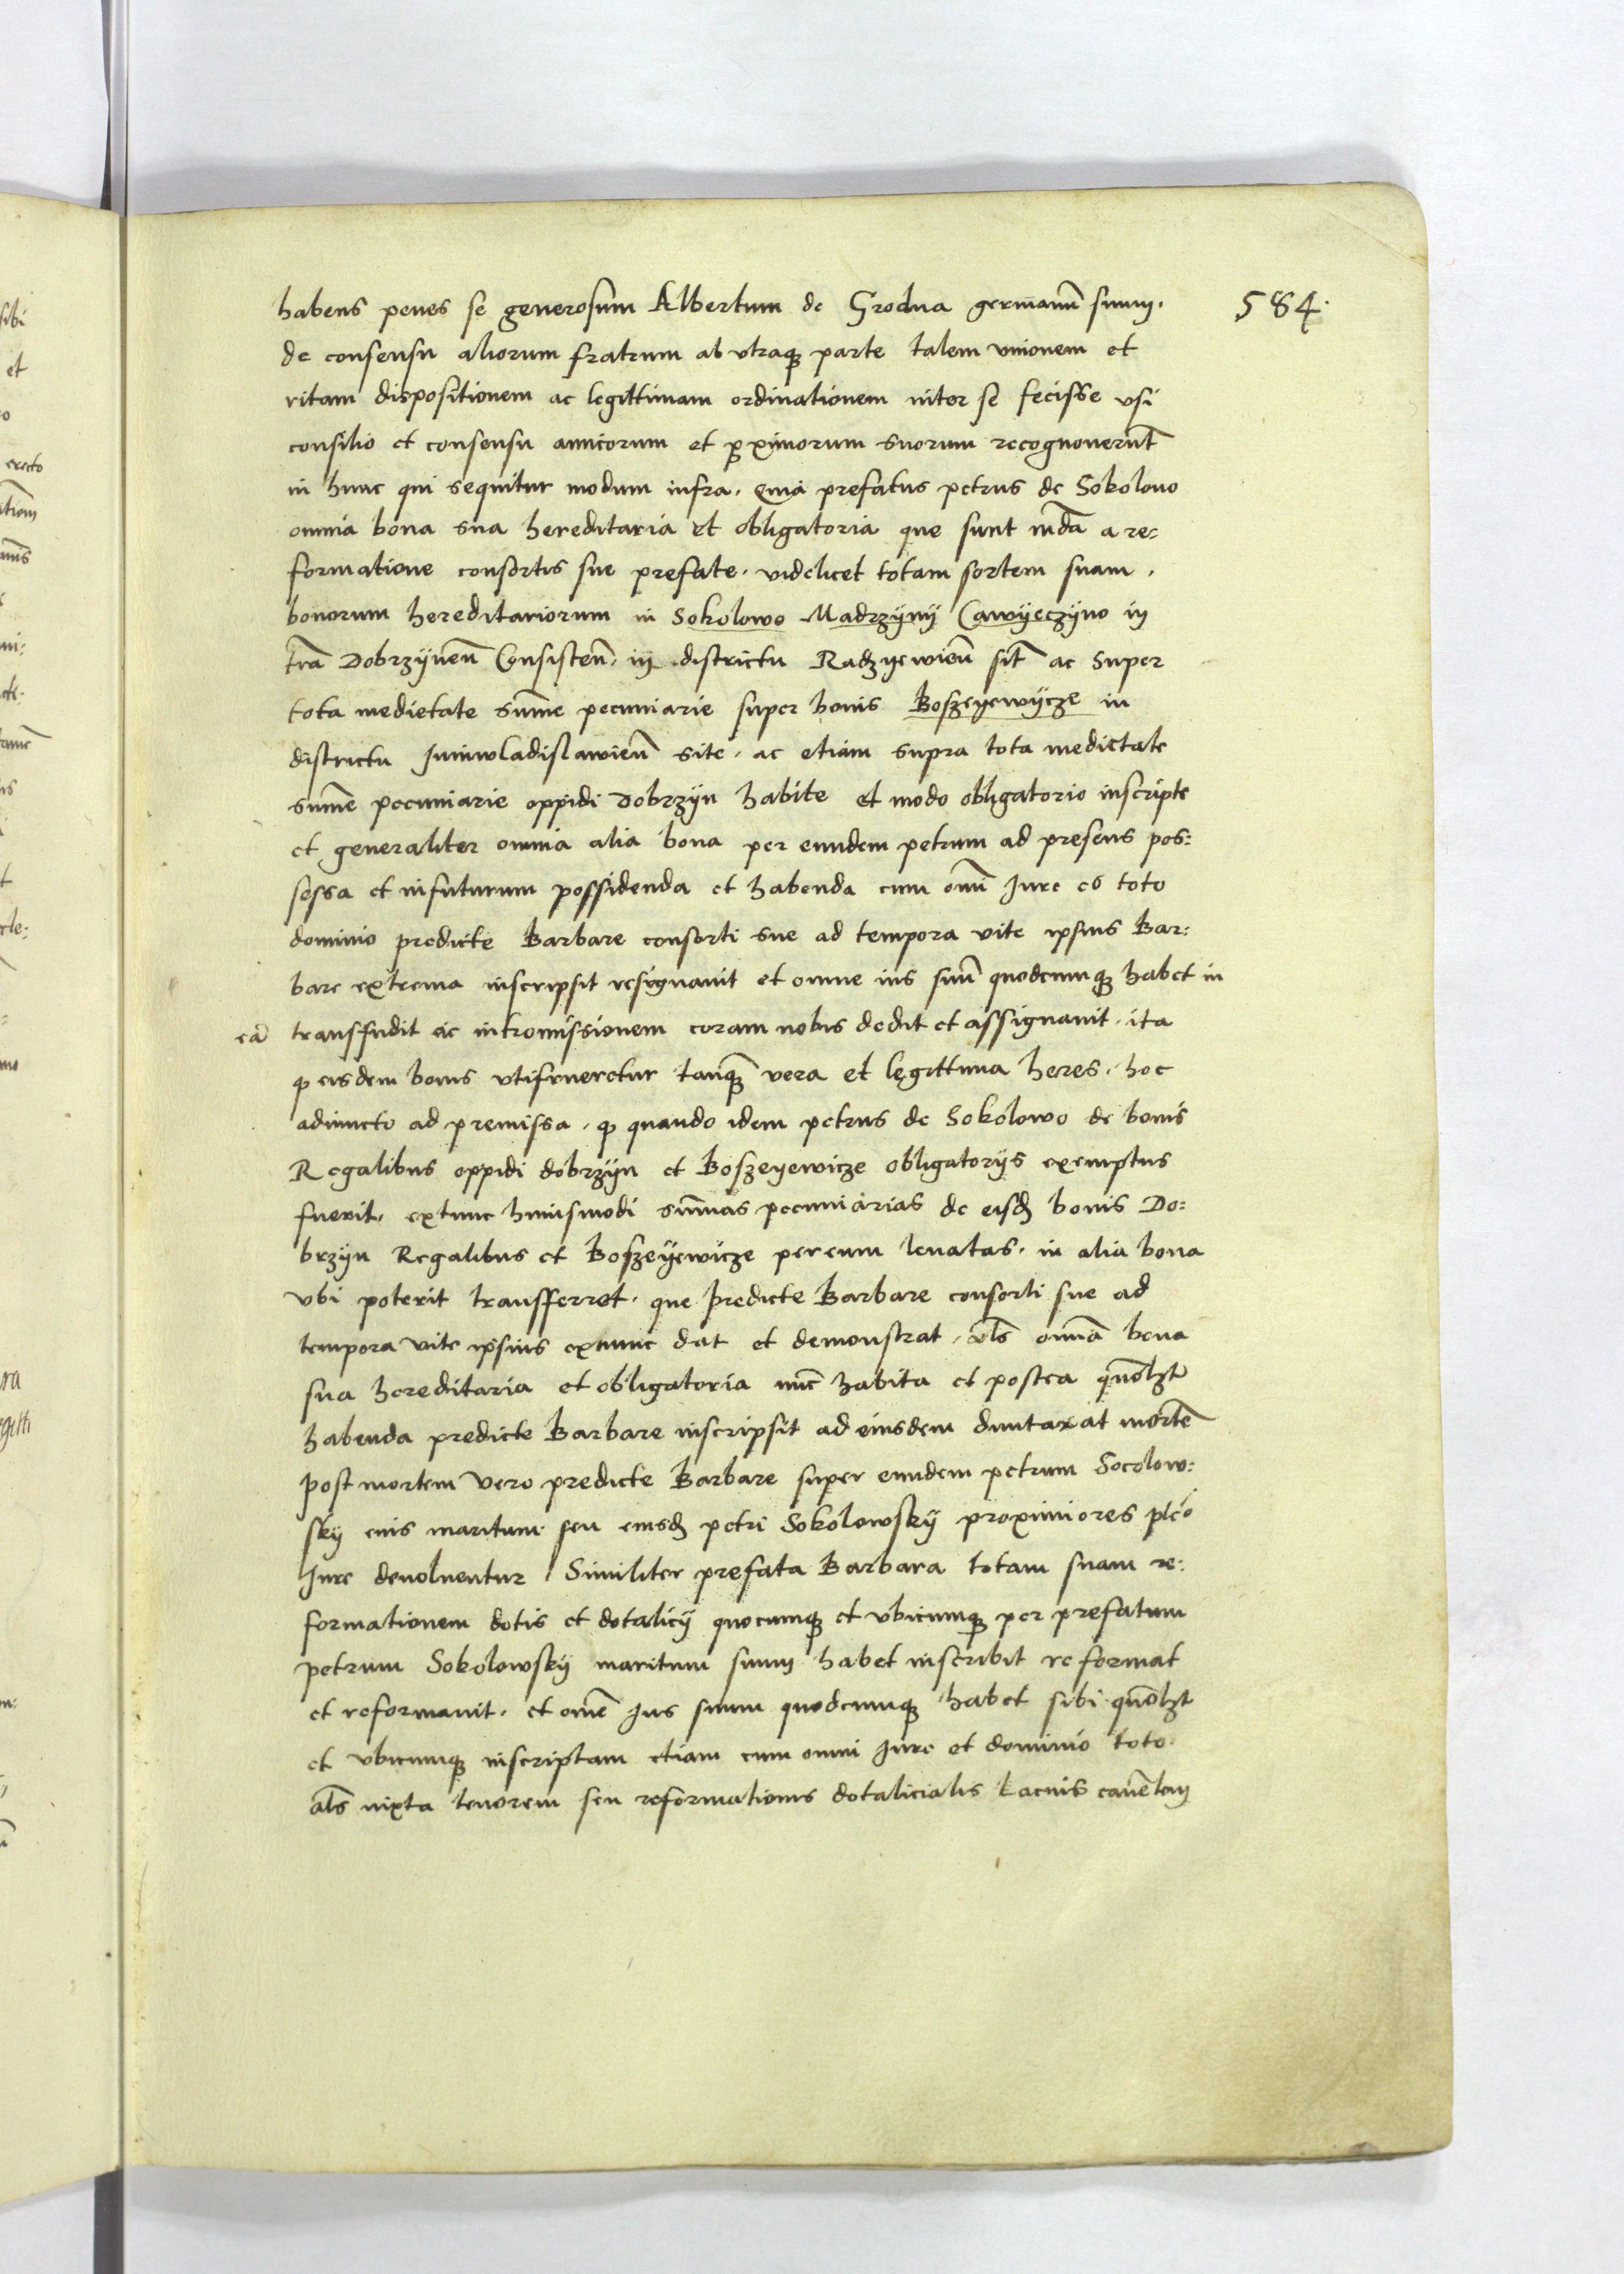 584.
habens penes se generosum Albertum de Grodna germanū suum.
de consensu aliorum fratrum ab vtraq̄ parte talem vnionem et
ritam dispositionem ac legittimam ordinationem inter se fecisse vsi
consilio et consensu amicorum et pximorum suorum recognouerūt
in hunc qui sequitur modum infra. Quia prefatus petrus de Sokolouo
omnia bona sua hereditaria et obligatoria que sunt a re:
formatione consortis sue prefate. videlicet totam sortem suam.
bonorum hereditariorum in Sokolowo Madrzyny Cawyeczyno in
trā Dobrzyneñ Consisteñ. in districtu Radzyewieñ sit ac super
tota medietate sum̄e pecuniarie super bonis Boszeyewycze in
districtu Juniwladislawieñ site. ac etiam supra tota medietate
sum̄e pecuniarie oppidi Dobrzyn habite et modo obligatorio inscripte
et generaliter omnia alia bona per eundem petrum ad presens pos:
sessa et in futurum possidenda et habenda cum om̄i Jure et toto
dominio predicte Barbare consorti sue ad tempora vite ipsius Bar:
bare extrema inscripsit resignauit et omne ius suū quodcumq̄ habet in
eā transfudit ac intromissionem coram nobis dedit et assignauit. ita
q̄ eisdem bonis vtifrueretur tanq̄ vera et legittima heres. hoc
adiuncto ad premissa. q̄ quando idem petrus de Sokolowo de bonis
Regalibus oppidi dobrzyn et Boszeyewicze obligatorijs exemptus
fuerit. extunc huiusmodi sum̄as pecuniarias de eisd bonis Do:
brzyn Regalibus et Boszeyewicze per eum leuatas. in alia bona
vbi poterit transfferret. que predicte Barbare consorti sue ad
tempora vite ipsius extunc dat et demonstrat. als omīa bona
sua hereditaria et obligatoria nūc habita et postea quōlzt
habenda predicte Barbare inscripsit ad eiusdem duntaxat mortē
post mortem vero predicte Barbare super eundem petrum Socolow:
sky eius maritum seu eiusd petri Sokolowsky proximiores
Jure deuoluentur Similiter prefata Barbara totam suam re:
formationem dotis et dotalicij quocumq̄ et vbicumq̄ per prefatum
petrum Sokolowsky maritum suum habet inscribit reformat
et reformauit. et om̄e Jus suum quodcumq̄ habet sibi quōlzt
et vbicumq̄ inscriptam etiam cum omni Jure et dominio toto.
als iuxta tenorem seu reformationis dotalicialis